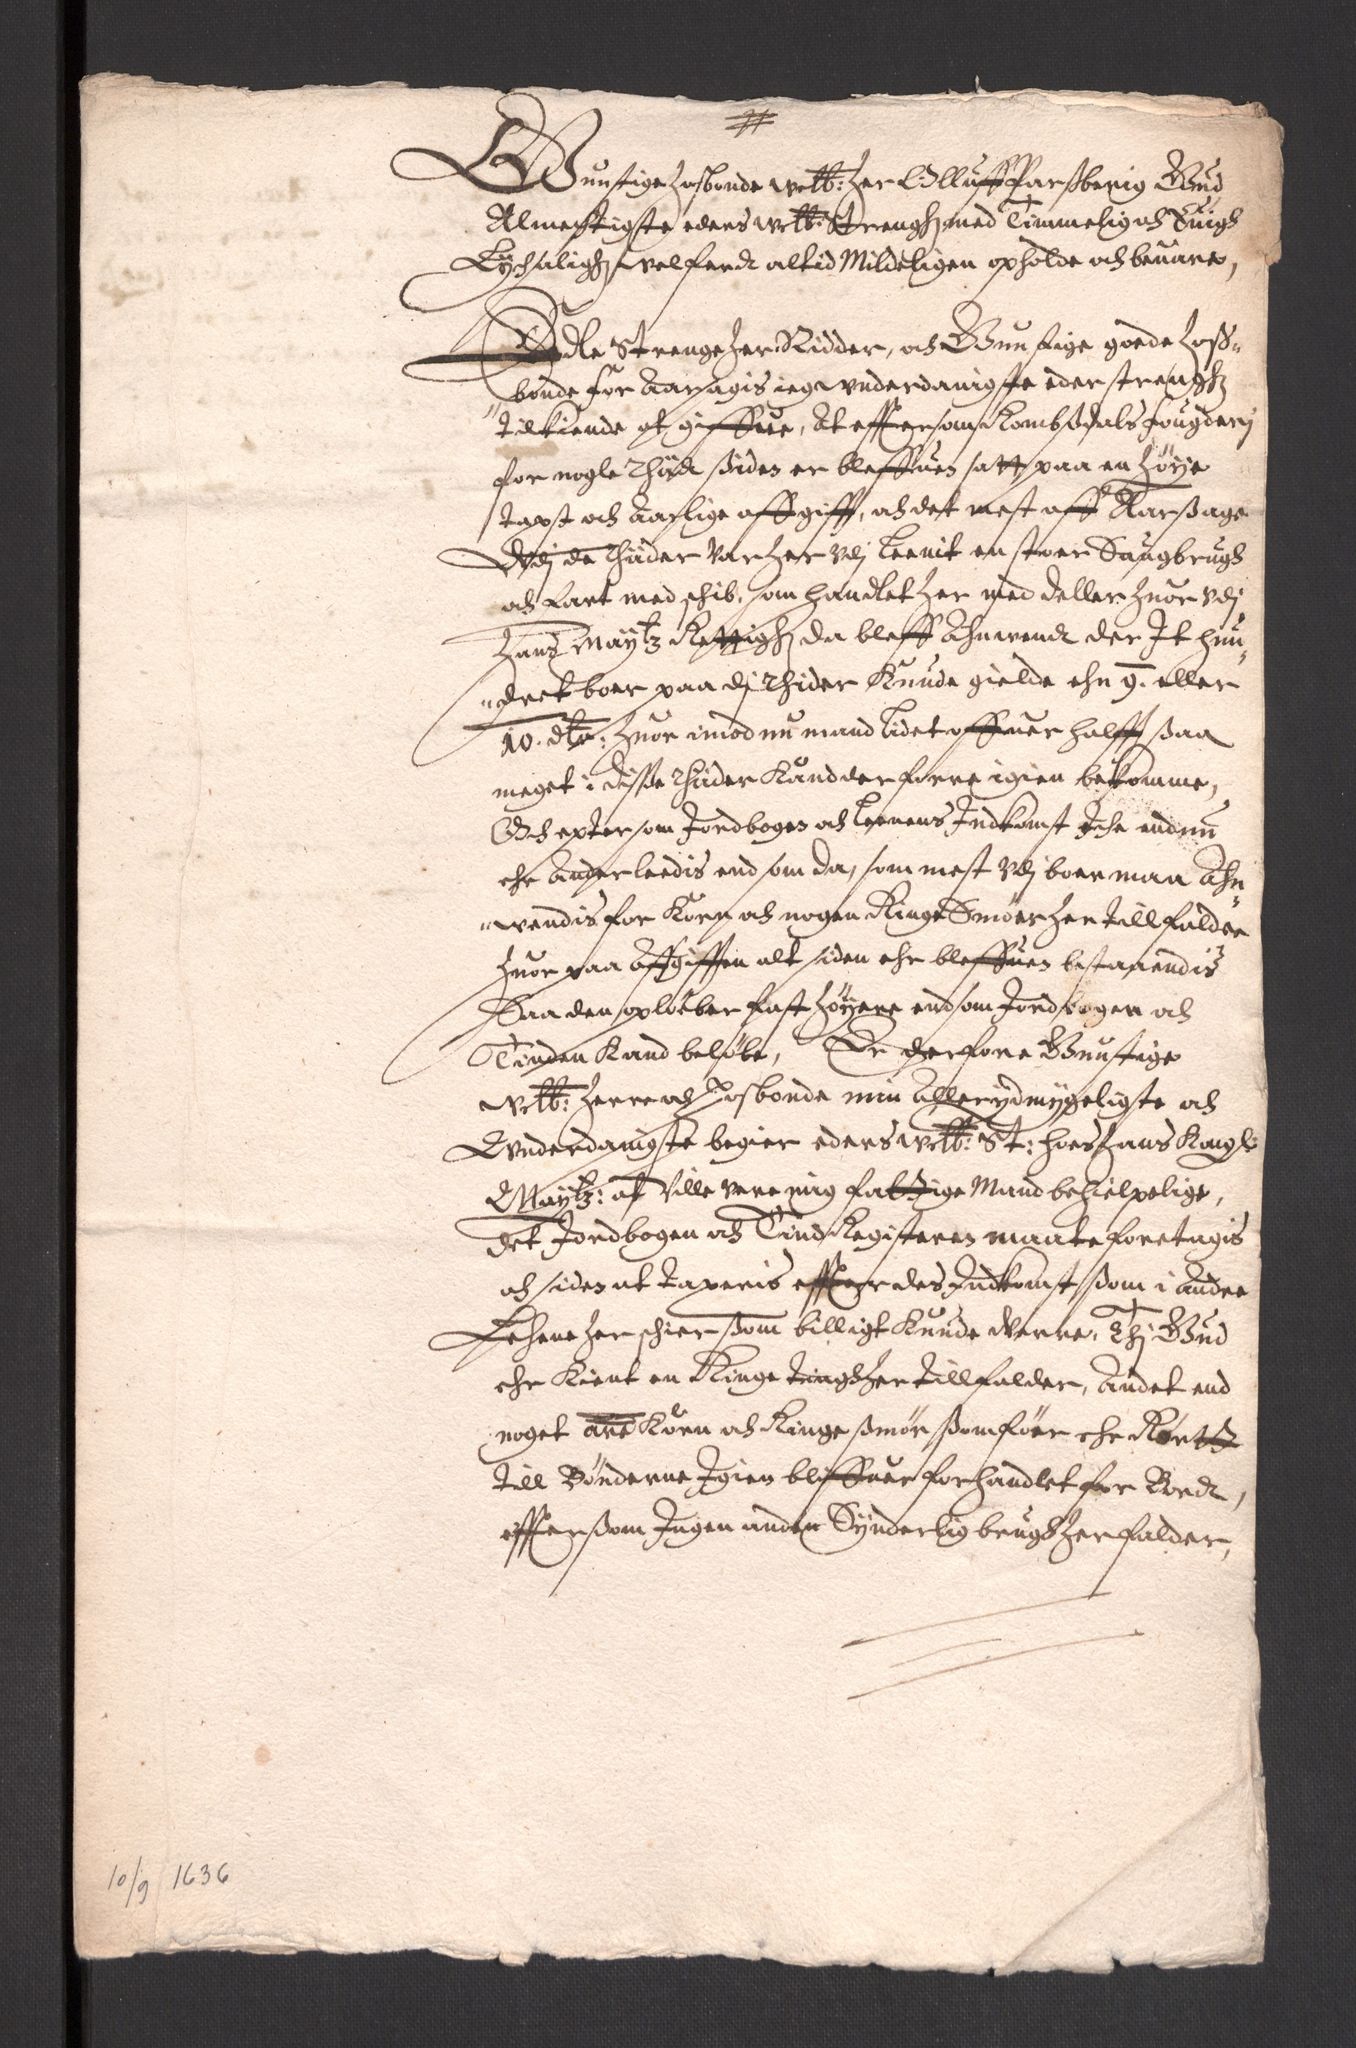 Gunstige hosbonde welb: her Olluff Parsberig Gud
Almectigste eders welb: Strengh: med Timmelig och Euigh
Lychsaligh: welferdt altid Mildeligen opholde och beuare,
Edle Strenge her Ridder, och Gunstige goede hoss-
bonde for Aarsagis ieg vnderdanigste eder strengh:
tilkiende at giffue, At effter som Rombssdals fougderj
for nogle thid siden er bleffuen satt paa en höye
taxt och aarlige affgifft, och det mest aff Aarsage
Vdj de thider var her vdj Leenit en stoer Saugbrugh
och fart med schib, som handlet her med deller huor vdj
Hans Maytz Rettigh: da bleff Ahnwendt der It hun-
dret boer paa dj thider kunde gielde ehn 9. eller
10. dlr: huor imod nu mand lidet offuer halfft saa
meget i disse thider kand der forre igien bekomme,
Och epter som Jordbogen och Leenens Indkomst Iche end nu
ehr anderleedis end som da, som mest vdj boer maa Ahn-
wendis for korn och nogen Ringe Smöer her till falder
huor paa Affgifften alt siden ehr bleffuen bestaaendis
Saa den opløber fast höyere end som Jordbogen och
Tinden kand beløbe, Er derfore Gunstige
welb: herre och hosbonde min Allerydmygeligste och
Vnderdanigste begier eders welb: St: hoes hans Kongl:
Maytz: at ville vere mig fattige Mand behielpelige,
det Jordbogen och Tind Registeren maate foretagis
och siden at taxeris effter des Indkomst som i andre
Lehene her schier som billigt kunde werre, Thj Gud
ehr kient en Ringe tingh her till falder, andet end
noget korn och Ringe smör som föer ehr Rørtt
till Bønderne Igien bliffuer forhandlet for Bordt,
effter som Ingen anden Synderlig brugh her falder,
10/9 1636